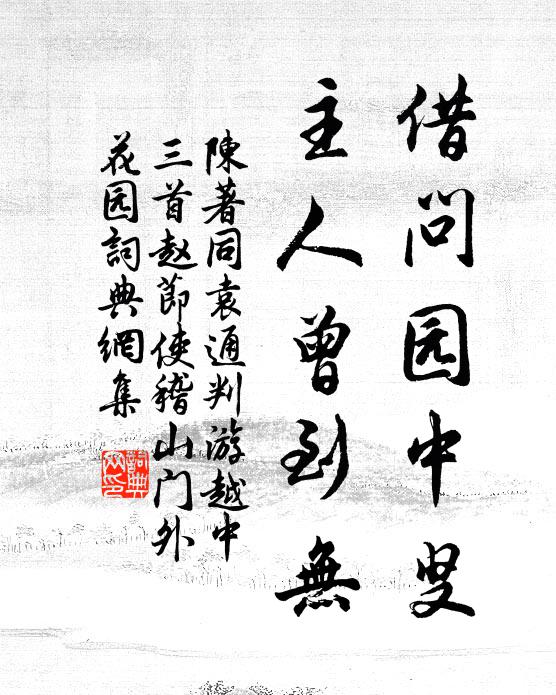 借问园中叟
主人曾到無
陳著同袁通判游越中
三首赵節使稽山门外
花园詞典網集
詞典网印